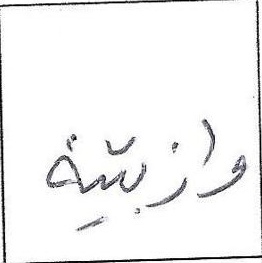 وازبيّة